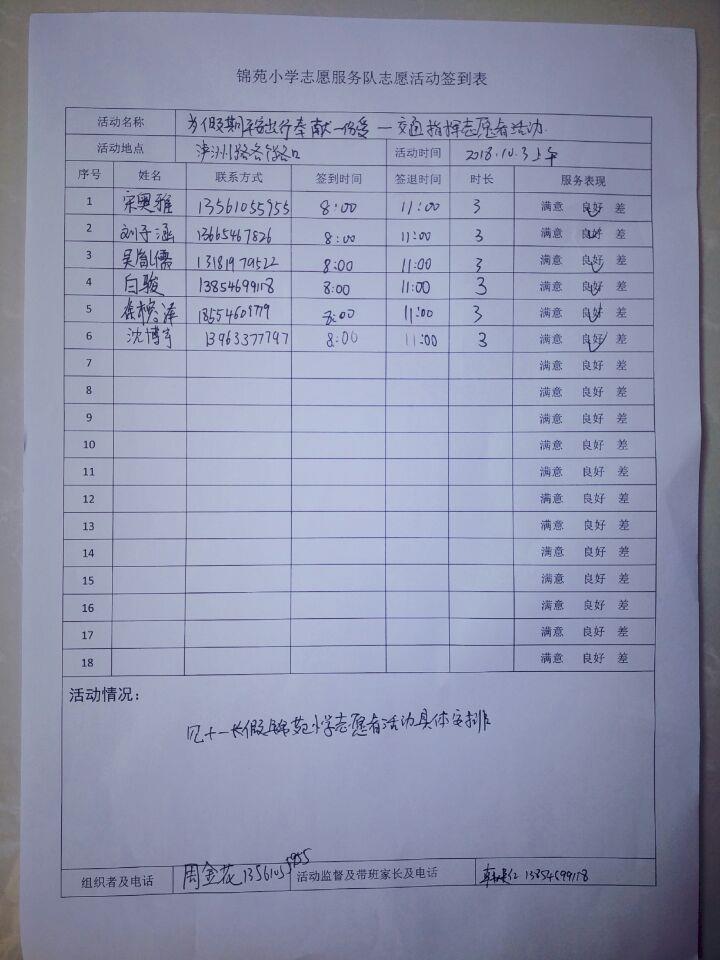 锦苑小学志愿服务队志愿活动签到表
活动名称 为假期平安出行奉献一份爱—交通指挥志愿者活动
活动地点 路各街路口 活动时间 2018.10.3上午
序号 姓名 联系方式 签到时间 签退时间 时长 服务表现
1 宋奥雅 13561055955 8:00 11:00 3 满意 良好 差
2 刘子涵 13665467826 8:00 11:00 3 满意 良好 差
3 吴胤儒 13181979522 8:00 11:00 3 满意 良好 差
4 白骏 13854699118 8:00 11:00 3 满意 良好 差
5 泽 8:00 11:00 3 满意 良好 差
6 沈博宇 13963377797 8:00 11:00 3 满意 良好 差
7 满意 良好 差
8 满意 良好 差
9 满意 良好 差
10 满意 良好 差
11 满意 良好 差
12 满意 良好 差
13 满意 良好 差
14 满意 良好 差
15 满意 良好 差
16 满意 良好 差
17 满意 良好 差
18 满意 良好 差
活动情况：
见十一长假锦苑小学志愿者活动具体安排
组织者及电话 周金花 13561055955 活动监督及带班家长及电话 13854699118